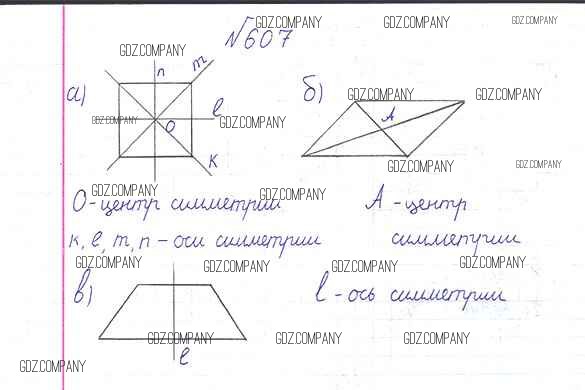 GDZ.COMPANY GDZ.COMPANY GDZ.COMPANY
№607
GDZ.COMPANY
а) n m l O k
GDZ.COMPANY GDZ.COMPANY
б) A
GDZ.COMPANY GDZ.COMPANY
GDZ.COMPANY GDZ.COMPANY
GDZ.COMPANY GDZ.COMPANY
О-центр симметрии
А-центр
симметрии
к, l, m, n - оси симметрии
GDZ.COMPANY GDZ.COMPANY GDZ.COMPANY GDZ.COMPANY
в) l
l-ось симметрии
GDZ.COMPANY GDZ.COMPANY GDZ.COMPANY
GDZ.COMPANY